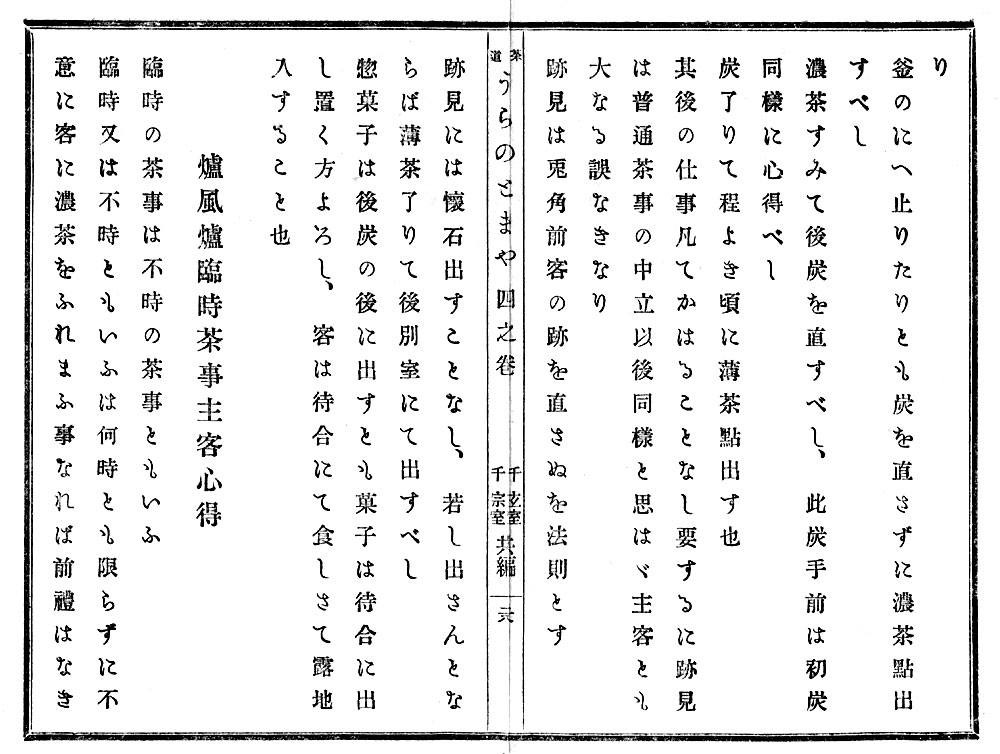 り
釜のにへ止りたりとも炭を直さずに濃茶點出
すべし
濃茶すみて後炭を直すべし、此炭手前は初炭
同樣に心得べし
炭了りて程よき頃に薄茶點出す也
其後の仕事凡てかはることなし要するに跡見
は普通茶事の中立以後同樣と思はゞ主客とも
大なる誤なきなり
跡見は兎角前客の跡を直さぬを法則とす
茶道 うらのとまや 四之卷 千玄室 千宗室 共編 六
跡見には懷石出すことなし、若し出さんとな
らば薄茶了りて後別室にて出すべし
惣菓子は後炭の後に出すとも菓子は待合に出
し置く方よろし、客は待合にて食しさて露地
入すること也
爐風爐臨時茶事主客心得
臨時の茶事は不時の茶事ともいふ
臨時又は不時ともいふは何時とも限らずに不
意に客に濃茶をふれまふ事なれば前禮はなき